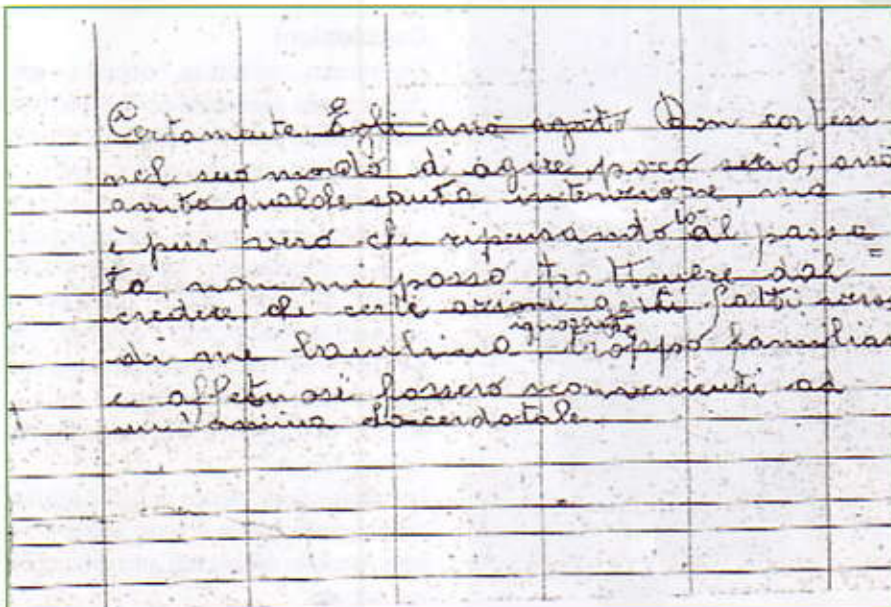 Certamente Egli avrà agito Don cortesi
nel suo modo di agire poco serio, avrà
avuto qualche santa intenzione, ma
è pur vero che ripensando lo al passa=
to, non mi posso trattenere dal
credere che certi azioni gesti fatti verso
di me bambina ignorante troppo familiar
e affetuosi fossero sconvenienti ad
un'anima sacerdotale.